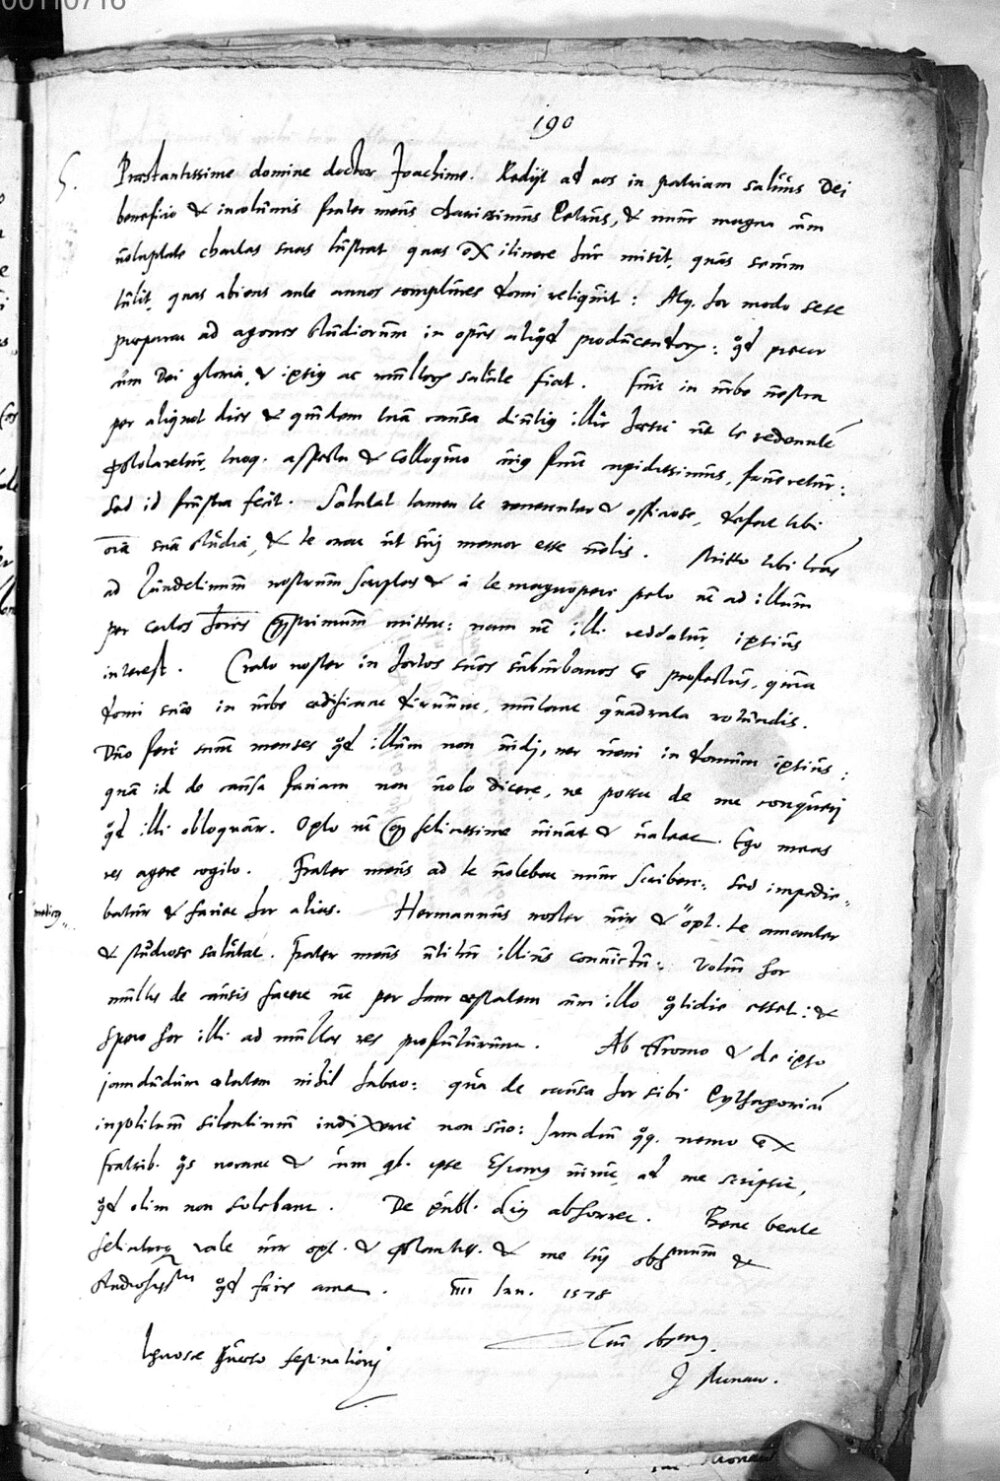 00110716
190
S. Praestantissime domine doctor Joachime. Redijt ad nos in patriam salvus Dei
beneficio & incolumis frater meus charissimus Petrus, & nunc magna cum
voluptate chartas suas lustrat quas ex itinere huc misit, quas secum
tulit, quas abiens ante annos complures domi reliquit: Aliq. hoc modo sese
praeparat ad agones studiorum in opus aliqd producendos: qd precor
cum Dei gloria, & ipsius ac multorum salute fiat. Fuit in urbe nostra
per aliquot dies & quidem tua causa diutius illic haesit ut te redeunte
tuoq. aspectu & colloquio cuius fuit cupidissimus, frueretur:
Sed id frustra fecit. Salutat tamen te reverenter & officiose, defert tibi
oia sua studia, & te orat ut sui memor esse velis. Mitto tibi lras
ad nostrum scriptas & a te magnopere peto ut ad illum
per certos hoies qprimum mittas: nam ut illi reddatur ipsius
interest. Crato noster in hortos suos suburbanos e profectus, quia
domi suae in urbe aedificat diruitque, mutat quadrata rotundis.
Duo fere sunt menses qd illum non vidi, nec veni in domum ipsius:
qua id de causa faciam non volo dicere, ne possit de me conqueri
qd illi obloquar. Opto ut q felicissime vivat & valeat. Ego meas
res agere cogito. Frater meus ad te volebat nunc scribere: sed impedie-
batur & faciet hoc alias. Hermannus noster vir & opt. te amanter
medicus
& studiose salutat. Frater meus utitur illius convictu: volui hoc
multis de causis facere ut per hanc aestatem cum illo qtidie esset: &
spero hoc illi ad multas res profuturum. Ab & de ipso
jamdudum nihil habeo: qua de causa hoc sibi Pythagoricu
insolitum silentium indixerit non scio: Jamdiu qq. nemo ex
fratrib. qs & cum qb. ipse vivit, ad me scripsit,
qd olim non solebant. De publ. abhorret. Bene beate
feliciterq vale vir opt. & & me tui obsmum &
qd facis ama. IIII Jan. 1578
Tuus
Ignosce quaeso festinationi
J Monaw.